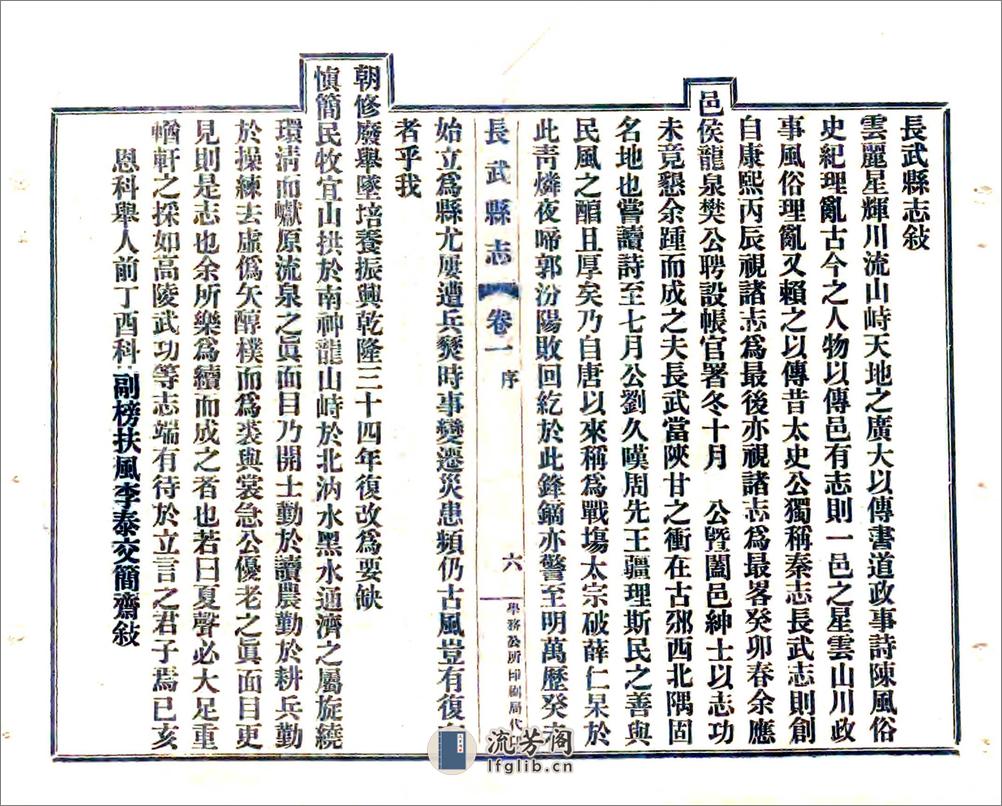 長武縣志敍
雲麗星輝川流山峙天地之廣大以傳書道政事詩陳風俗
史紀理亂古今之人物以傳邑有志則一邑之星雲山川政
事風俗理亂又賴之以傳昔太史公獨稱秦志長武志則創
自康熙丙辰視諸志爲最後亦視諸志爲最畧癸卯春余應
邑侯龍泉樊公聘設帳官署冬十月 公暨闔邑紳士以志功
未竟懇余踵而成之夫長武當陜甘之衝在古邠西北隅固
名地也嘗讀詩至七月公劉久嘆周先王疆理斯民之善與
民風之醇且厚矣乃自唐以來稱爲戰塲太宗破薛仁杲於
此靑燐夜啼郭汾陽敗回紇於此鋒鏑亦警至明萬歷癸
長武縣志 卷一 序 六 學務公所印刷局代
始立爲縣尤屢遭兵燹時事變遷災患頻仍古風豈有復
者乎我
朝修廢舉墜培養振興乾隆三十四年復改爲要缺
愼簡民牧宜山拱於南神龍山峙於北汭水黑水通濟之屬旋繞
環淸而巘原流泉之眞面目乃開士勤於讀農勤於耕兵勤
於操練去虛僞矢醇樸而爲裘與裳急公優老之眞面目更
見則是志也余所樂爲續而成之者也若曰夏聲必大足重
輶軒之採如高陵武功等志端有待於立言之君子焉已亥
恩科舉人前丁酉科副榜扶風李泰交簡齋敍
流芳阁
lfglib.cn